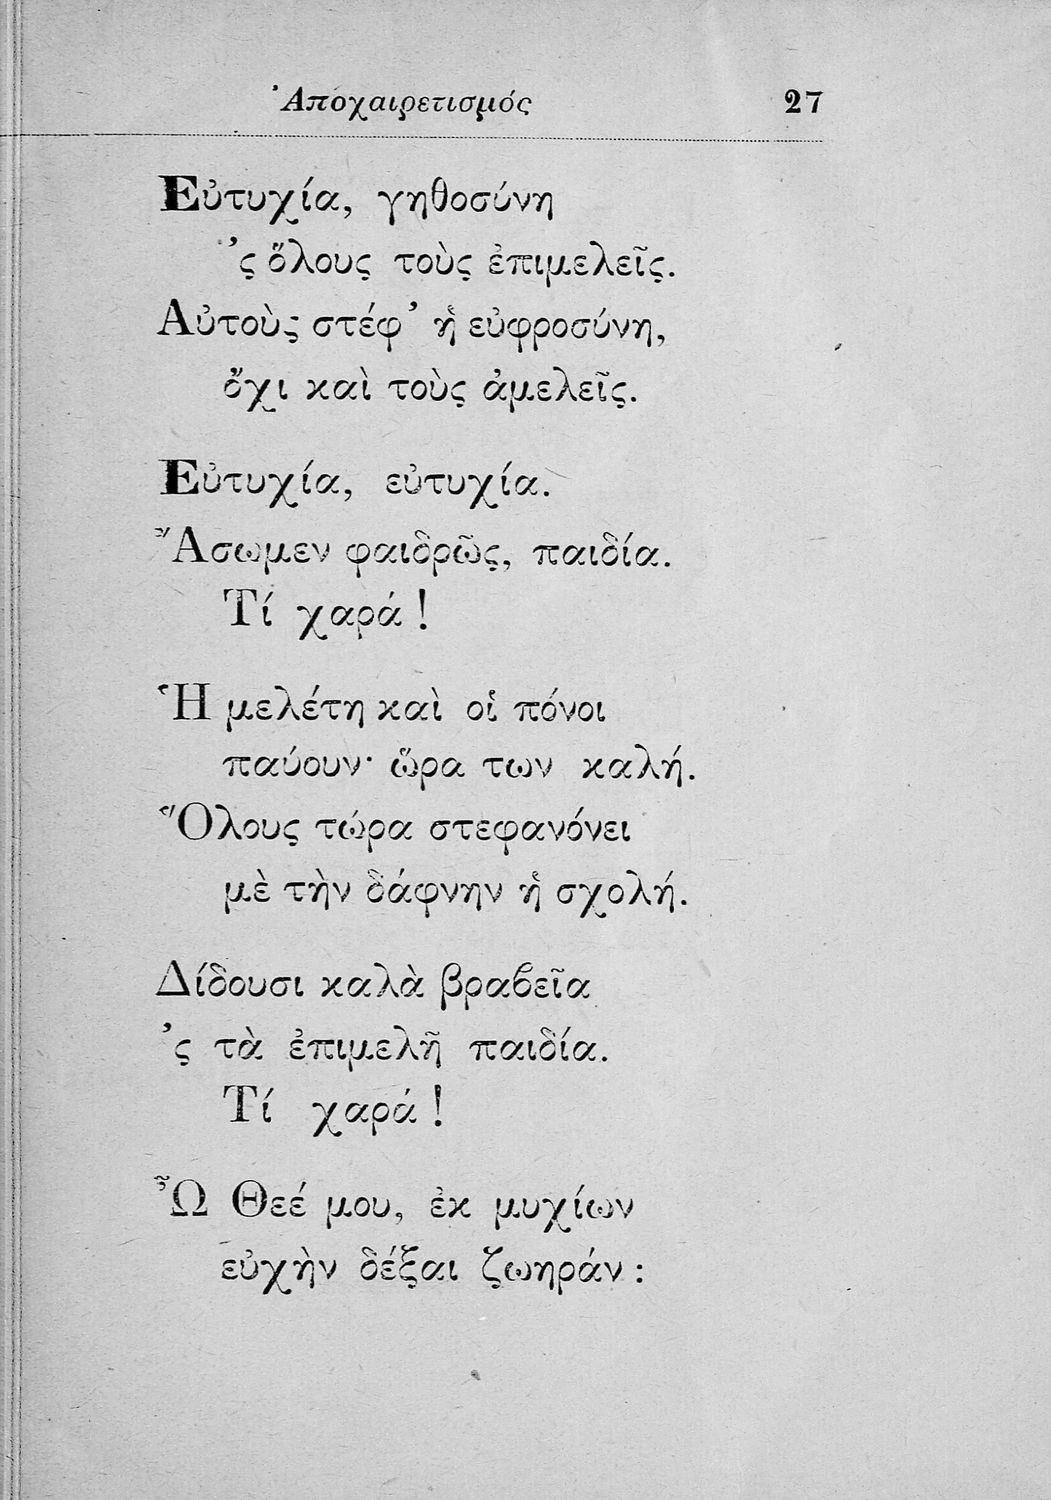 Ἀποχαιρετισμός 27
Εὐτυχία, γηθοσύνη
'ς ὅλους τοὺς ἐπιμελεῖς.
Αὐτοὺς στέφ' ἡ εὐφροσύνη,
ὄχι καὶ τοὺς ἀμελεῖς.
Εὐτυχία, εὐτυχία.
Ἄσωμεν φαιδρῶς, παιδία.
Τί χαρά !
Ἡ μελέτη καὶ οἱ πόνοι
παύουν· ὥρα των καλή.
Ὅλους τώρα στεφανόνει
μὲ τὴν δάφνην ἡ σχολή.
Δίδουσι καλὰ βραϐεῖα
'ς τὰ ἐπιμελῆ παιδία.
Τί χαρά !
Ὦ Θεέ μου, ἐκ μυχίων
εὐχὴν δέξαι ζωηράν :